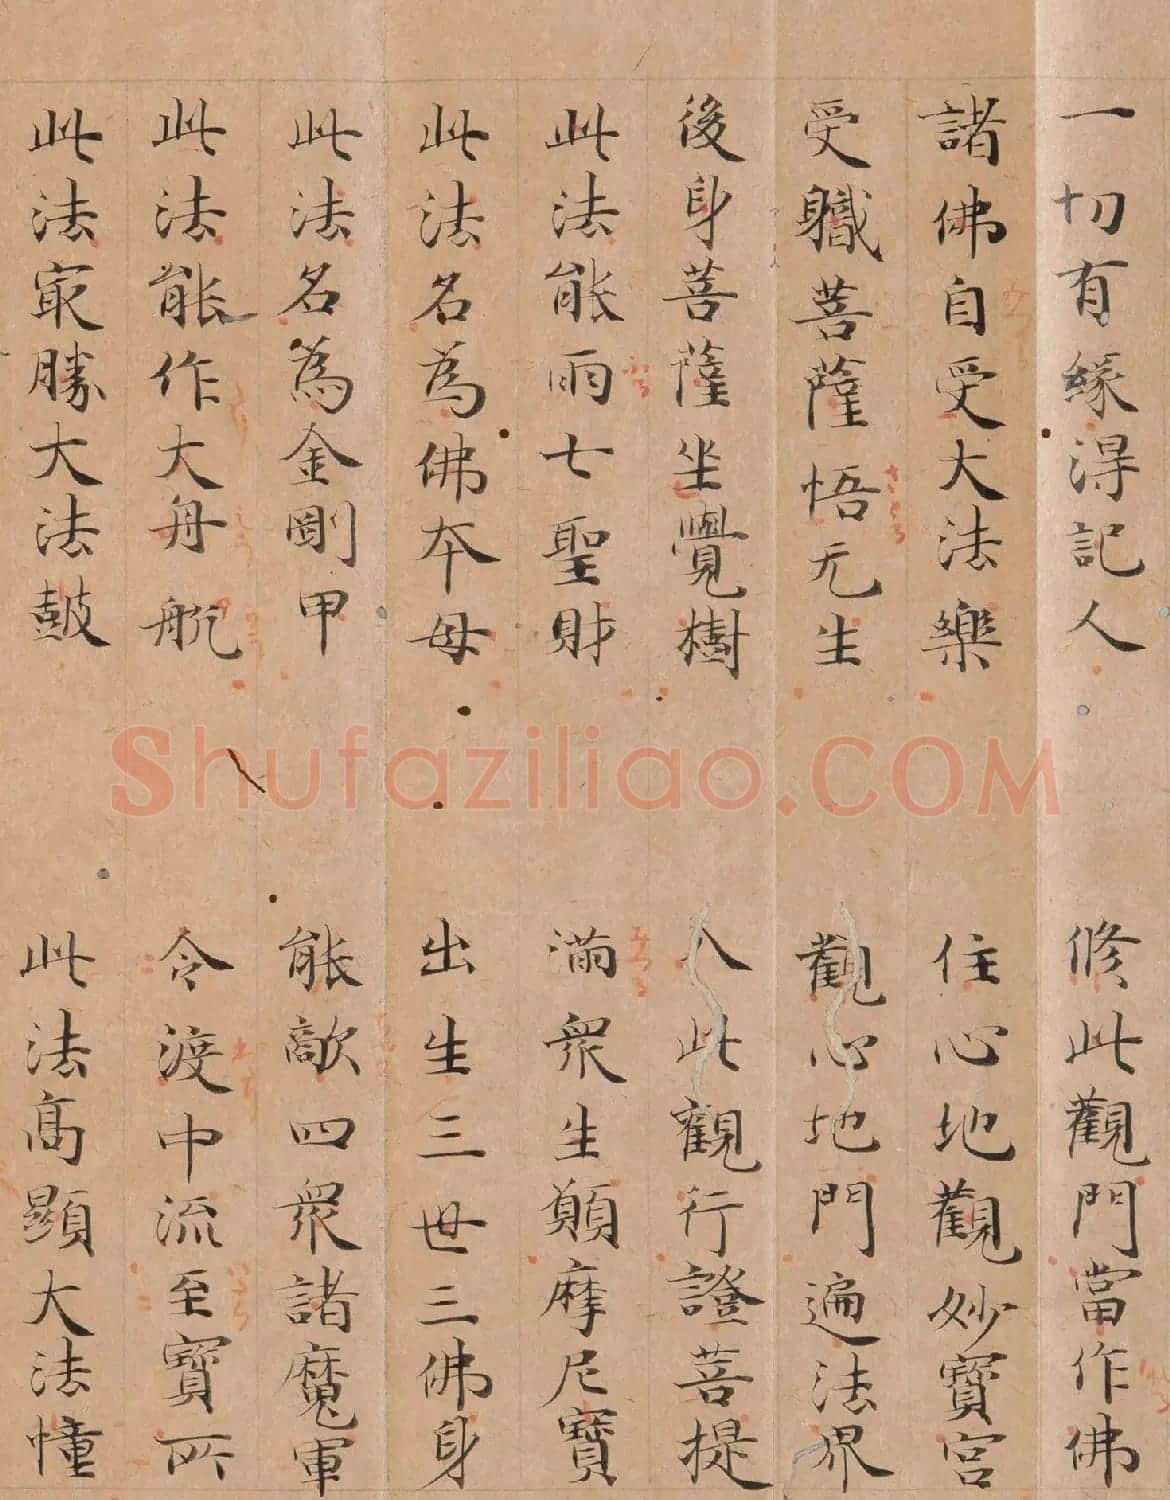 一切有緣得記人　修此觀門當作佛
諸佛自受大法樂　住心地觀妙寶宮
受軄菩薩悟无生　觀心地門遍法界
後身菩薩坐覺樹　入此觀行證菩提
此法能雨七聖財　滿眾生願摩尼寶
此法名為佛夲母　出生三世三佛身
此法名為金剛甲　能敵四眾諸魔軍
此法能作大舟舩　令渡中流至寶所
此法冣勝大法鼓　此法高顯大法幢
Shufaziliao.COM